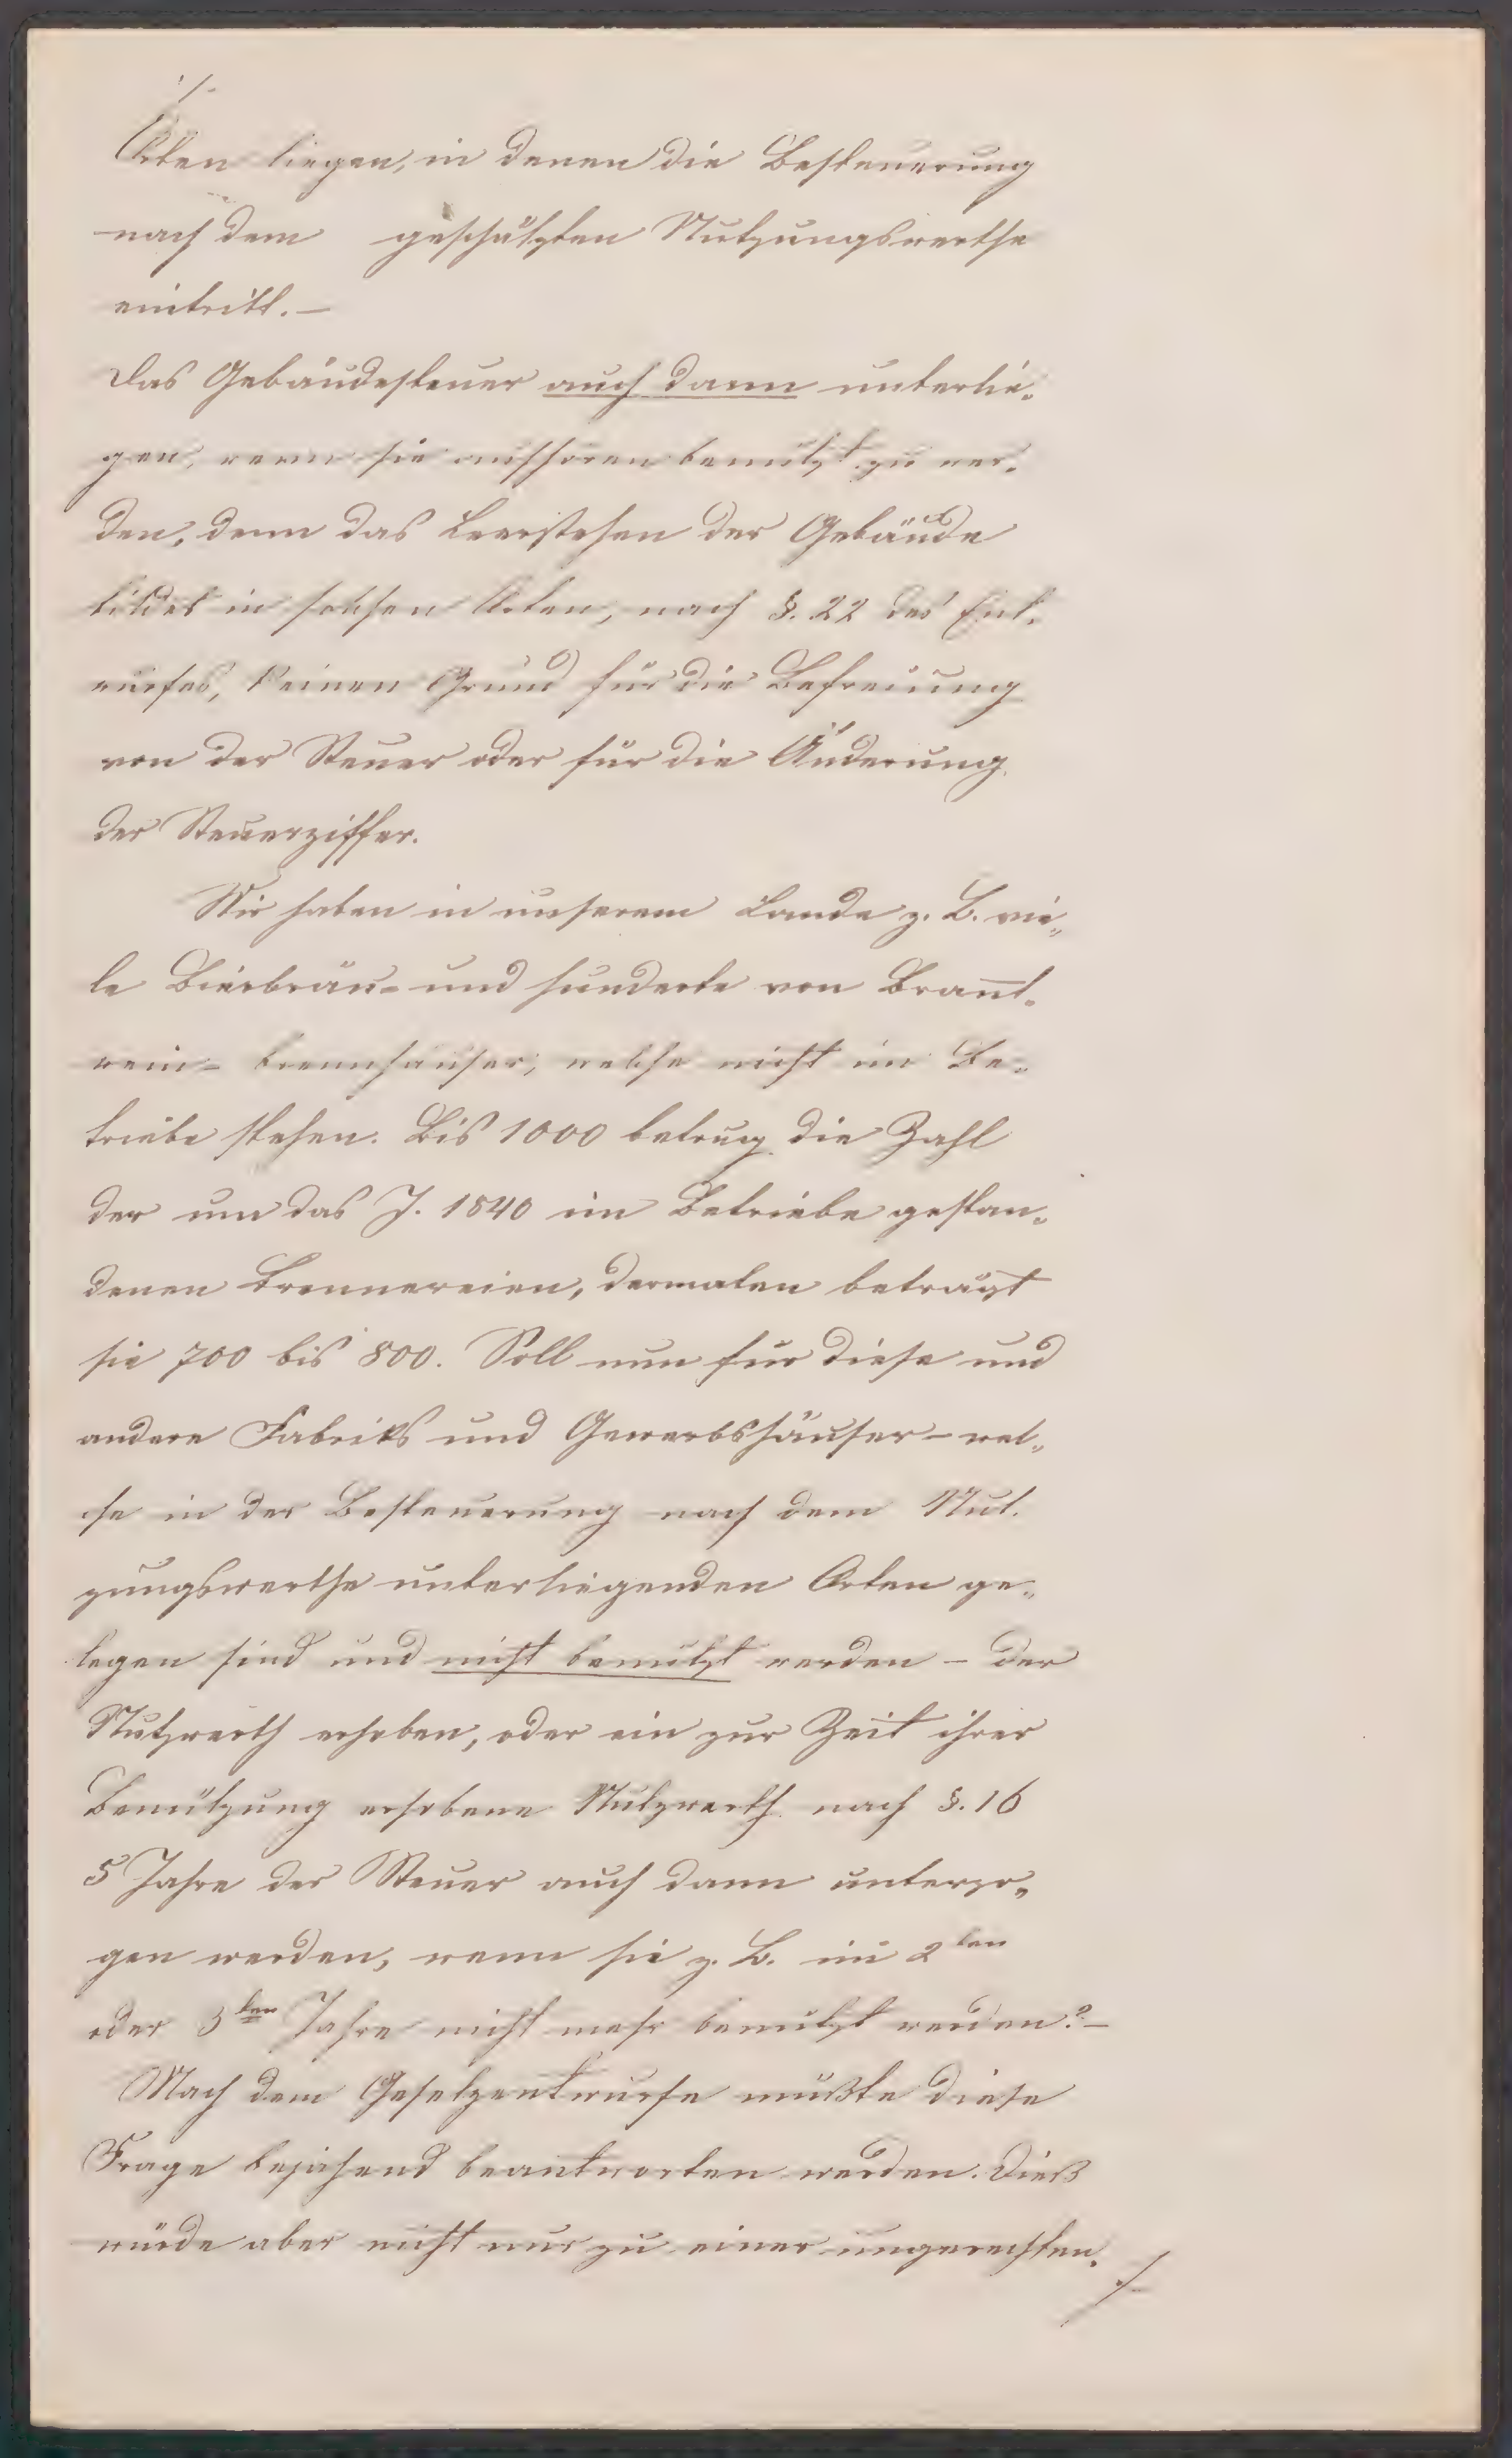 ./.
Orten liegen, in denen die Besteuerung
nach dem geschätzten Nutzungswerthe
eintritt. —
Das Gebäudesteuer auch dann unterlie-
gen, wenn sie aufhören benützt zu wer-
den, denn das Leerstehen der Gebäude
bildet in solchen Orten, nach §. 22 des Ent-
wurfes, keinen Grund für die Befreiung
von der Steuer oder für die Änderung
der Steuerziffer.
Wir haben in unserem Lande z. B. vie„
le Bierbräu- und hunderte von Brannt-
wein- brennhäuser, welche nicht im Be-
triebe stehen. Bis 1000 betrug die Zahl
der um das J. 1840 im Betriebe gestan-
denen Brennereien, dermalen beträgt
sie 700 bis 800. Soll nun für diese und
andere Fabriks und Gewerbshäuser – wel„
che in der Besteuerung nach dem Nut-
zungswerthe unterliegenden Orten ge„
legen sind und nicht benützt werden – der
Nutzwerth erhoben, oder ein zur Zeit ihrer
Benützung erhobene Nutzwerth nach §. 16
5 Jahre der Steuer auch dann unterzo„
gen werden, wenn sie z. B. im 2ten
oder 3ten Jahre nicht mehr benützt werden? –
Nach dem Gesetzentwurfe müßte diese
Frage bejahend beantworten werden. Dieß
würde aber nicht nur zu einer ungerechten
./.